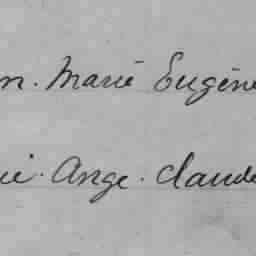 n. Marie Eugène
ie. Ange. Claude